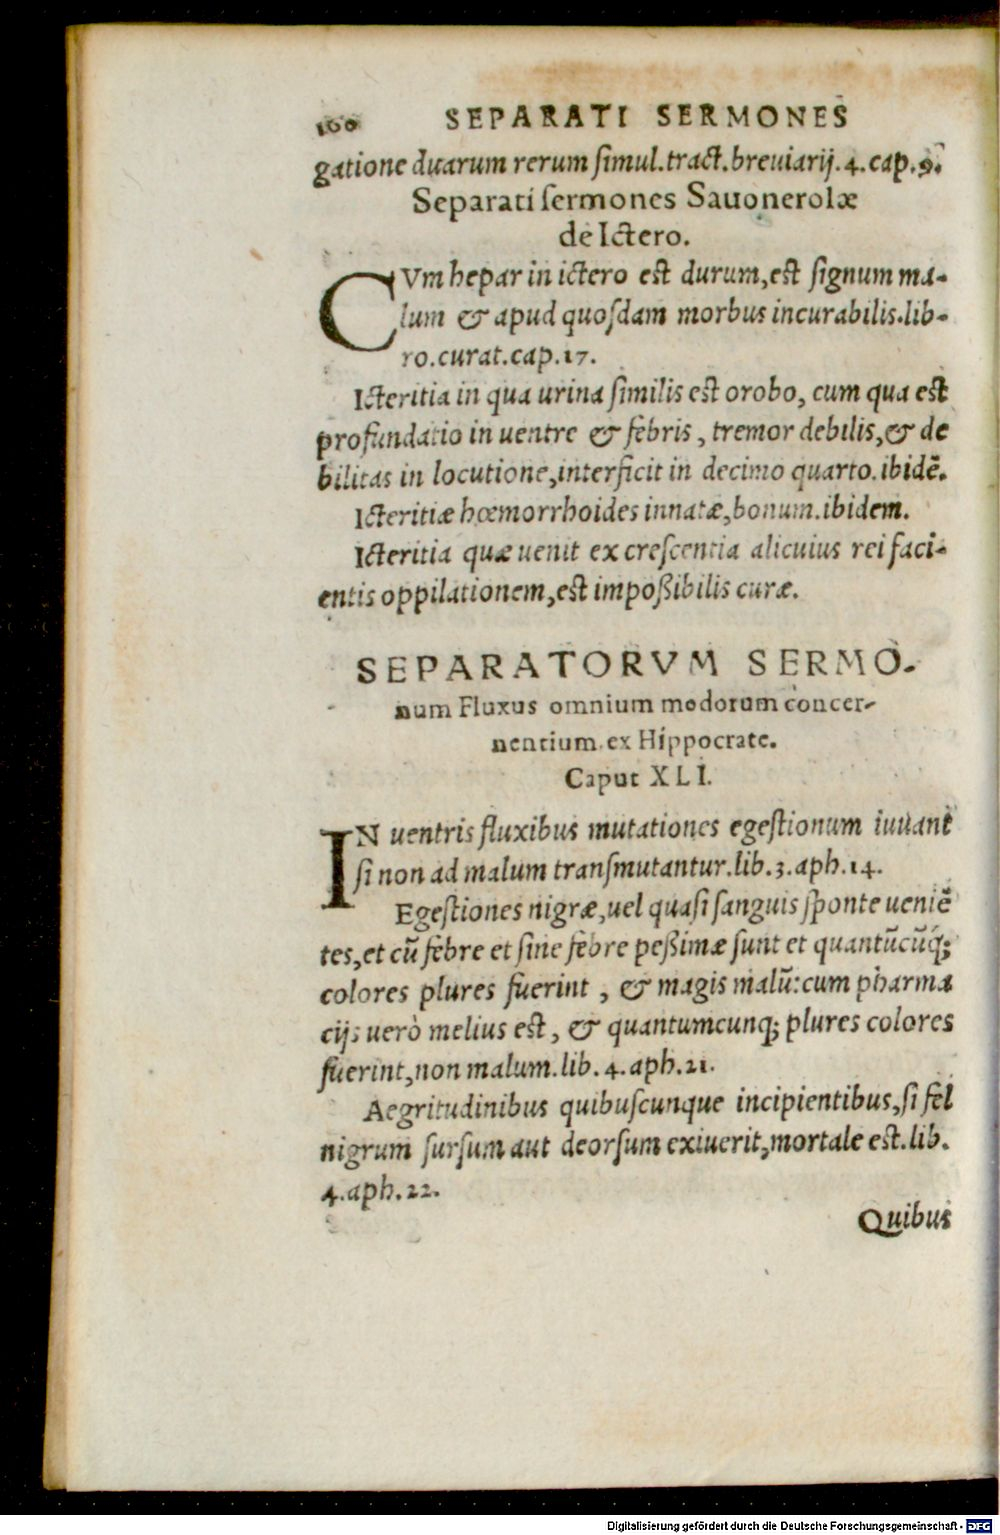 160 SEPARATI SERMONES
gatione duarum rerum ſimul.tract.breuiarij.4.cap.9.
Separati ſermones Sauonerolæ
de Ictero.
CVm hepar in ictero est durum,est ſignum ma-
lum & apud quoſdam morbus incurabilis.lib-
ro.curat.cap.17.
Icteritia in qua urina ſimilis est orobo, cum qua est
profundatio in uentre & febris, tremor debilis,& de
bilitas in locutione,interficit in decimo quarto.ibidē.
Icteritiæ hœmorrhoides innatæ,bonum.ibidem.
Icteritia quæ uenit ex creſcentia alicuius rei faci-
entis oppilationem,est impoßibilis curæ.
SEPARATORVM SERMO-
num Fluxus omnium modorum concer-
nentium ex Hippocrate.
Caput XLI.
IN uentris fluxibus mutationes egeſtionum iuuant
ſi non ad malum tranſmutantur.lib.3.aph.14.
Egeſtiones nigræ,uel quaſi ſanguis ſponte ueniē
tes,et cū febre et ſine febre peßimæ ſunt et quantūcūq́;
colores plures fuerint, & magis malū:cum pharma
cijs uerò melius est, & quantumcunq; plures colores
fuerint,non malum.lib.4.aph.21.
Aegritudinibus quibuſcunque incipientibus,ſi fel
nigrum ſurſum aut deorſum exiuerit,mortale est.lib.
4.aph.22.
Quibus
Digitalisierung gefördert durch die Deutsche Forschungsgemeinschaft - DFG